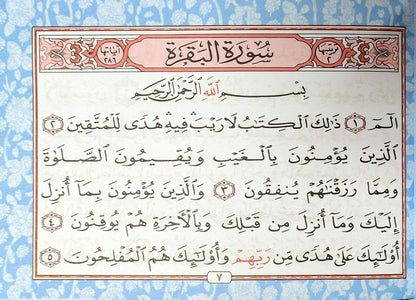 ترتيبها ٢ سورة البقرة آياتها ٢٨٦
بِسْمِ ٱللَّهِ ٱلرَّحْمَٰنِ ٱلرَّحِيمِ
الٓمٓ ١ ذَٰلِكَ ٱلْكِتَٰبُ لَا رَيْبَ ۛ فِيهِ هُدًى لِّلْمُتَّقِينَ ٢
ٱلَّذِينَ يُؤْمِنُونَ بِٱلْغَيْبِ وَيُقِيمُونَ ٱلصَّلَوٰةَ
وَمِمَّا رَزَقْنَٰهُمْ يُنفِقُونَ ٣ وَٱلَّذِينَ يُؤْمِنُونَ بِمَآ أُنزِلَ
إِلَيْكَ وَمَآ أُنزِلَ مِن قَبْلِكَ وَبِٱلْءَاخِرَةِ هُمْ يُوقِنُونَ ٤
أُو۟لَٰٓئِكَ عَلَىٰ هُدًى مِّن رَّبِّهِمْ وَأُو۟لَٰٓئِكَ هُمُ ٱلْمُفْلِحُونَ ٥
٧